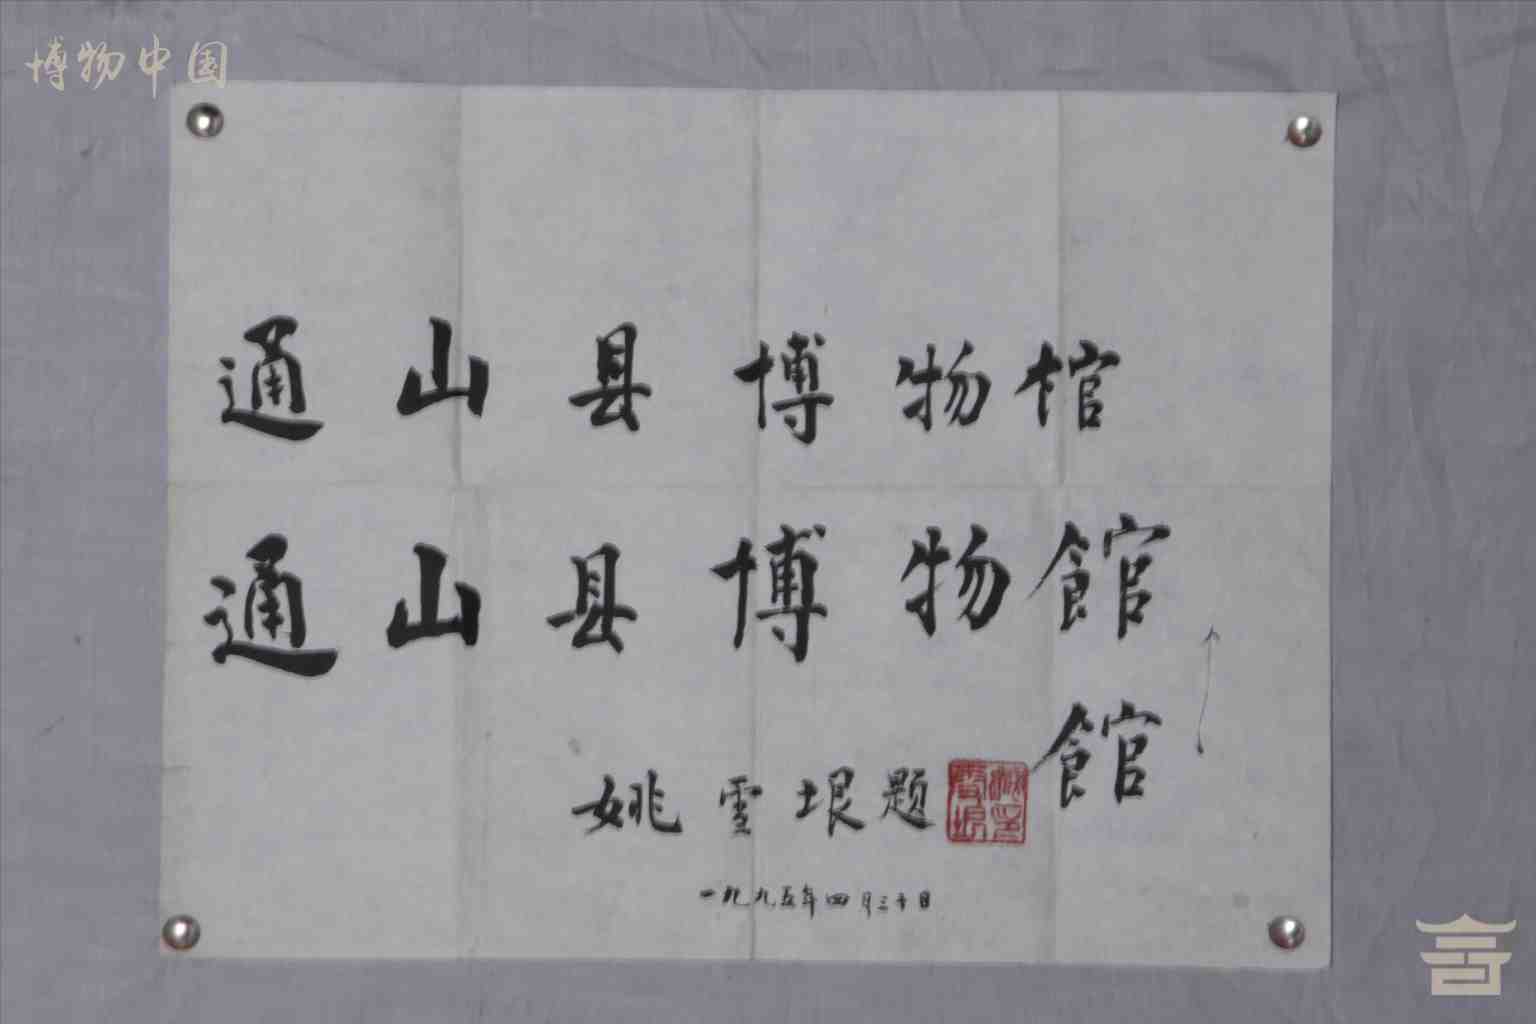 博物中国
通山县博物馆
通山县博物館
館
姚雪垠题
一九九五年四月三十日